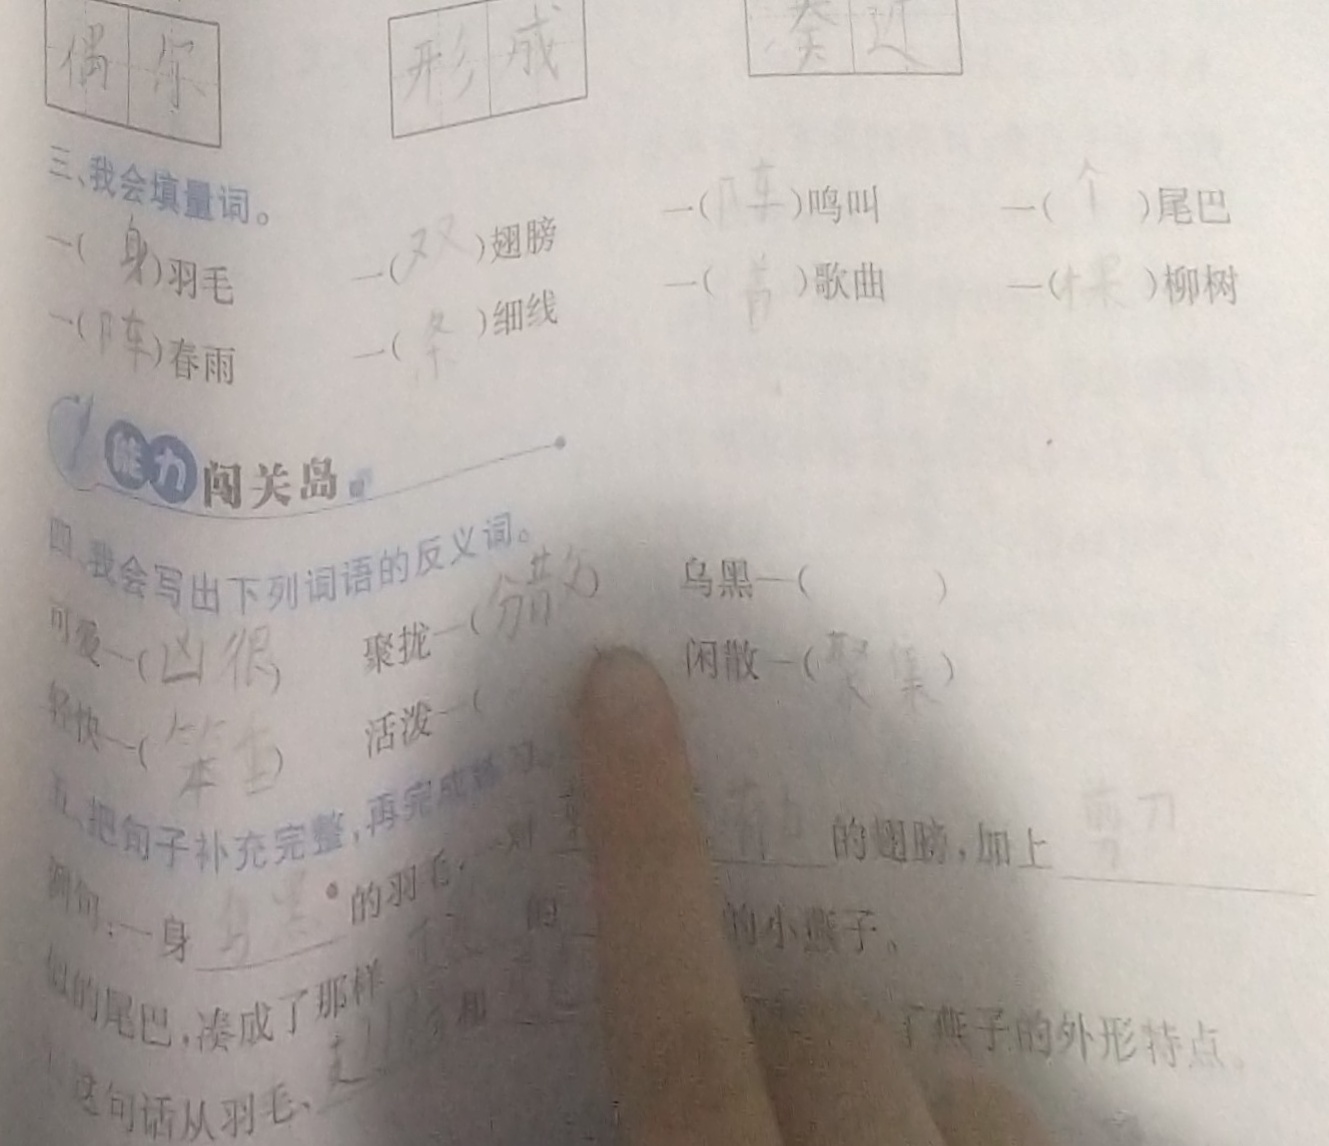 偶尔 形成 凑近
三、我会填量词。
一(身)羽毛 一(双)翅膀 一(阵)鸣叫 一(个)尾巴
一(阵)春雨 一(条)细线 一(首)歌曲 一(棵)柳树
能力闯关岛
四、我会写出下列词语的反义词。
可爱—(凶很) 聚拢—(分散) 乌黑—( )
轻快—(笨重) 活泼—( 闲散—(聚集)
五、把句子补充完整,再完成练习。
例句:一身乌黑的羽毛,一对 的翅膀,加上剪刀
似的尾巴,凑成了那样 的 的小燕子。
这句话从羽毛、 和 了燕子的外形特点。